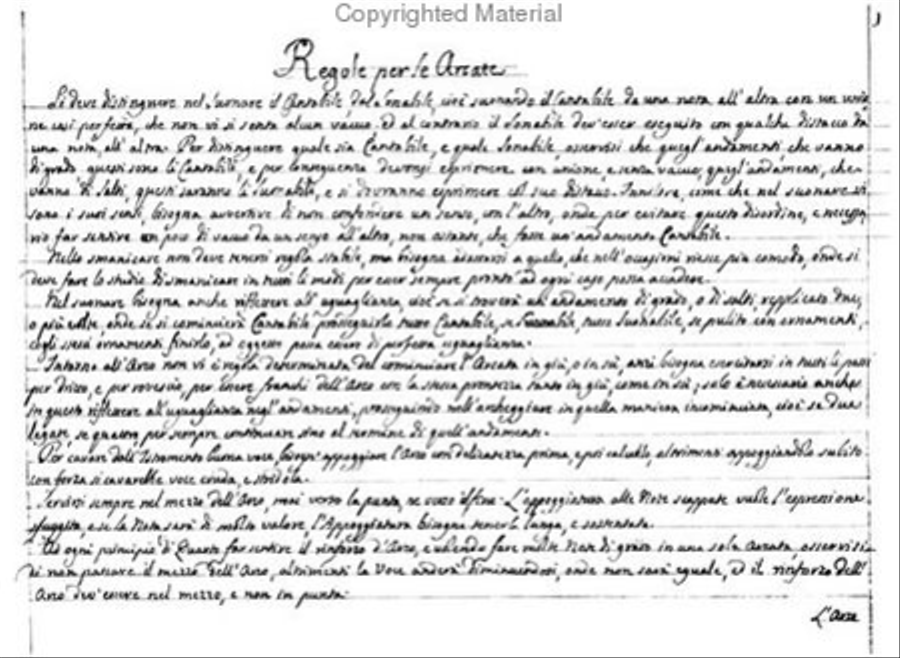 Copyrighted Material
Regole per le Arcate
Si deve distinguere nel suonare il Cantabile dal Sonabile, cioè suonando il Cantabile da una nota all' altra con un unio
ne così perfetta, che non vi si senta alcun vacuo, ed al contrario il Sonabile dev' esser eseguito con qualche distacco da
una nota, all' altra. Per distinguere quale sia Cantabile, e quale Sonabile, osservisi che quegl' andamenti, che vanno
di grado, questi sono li Cantabili, e per conseguenza devonsi esprimere con unione, e senza vacuo, quegl' andamenti, che
vanno di salti, questi saranno li suonabili, e si dovranno esprimere col suo distacco. Siccome, che nel suonare vi
sono i suoi sensi, bisogna avvertire di non confondere un senso, con l' altro, onde per evitare questo disordine, e necessa
rio far sentire un poco di vacuo da un senso all' altro, non ostante, che fosse un' andamento Cantabile.
Nello smanicare non deve tenersi regola stabile, ma bisogna adattarsi a quello, che nell' occasioni riesce più comodo, onde si
deve fare lo studio di smanicare in tutti li modi per esser sempre pronti ad ogni caso possa accadere.
Nel suonare bisogna anche riflettere all' uguaglianza, cioè se si troverà un andamento di grado, o di salti, repplicato due,
o più volte, onde se si comincierà Cantabile proseguirlo tutto Cantabile, se Suonabile, tutto Suonabile, se pulito con ornamenti,
cogli stessi ornamenti finirlo, ad oggetto possa essere di perfetta uguaglianza.
Intorno all' Arco non vi è regola determinata del cominciare l' Arcata in giù, o in sù, anzi bisogna esercitarsi in tutti li passi
per dritto, e per rovescio, per essere franchi dell' Arco con la stessa prontezza tanto in giù, come in sù; solo è necessario anche
in questo riflettere all' uguaglianza negl' andamenti, proseguindo nell' archeggiare in quella maniera incominciata, cioè se due
legate, se quattro, per sempre continuare sino al termine di quell' andamento.
Per cavare dall' Istromento buona voce, bisogn' appoggiare l' Arco con delicatezza prima, e poi calcarlo, altrimenti appoggiandolo subito
con forza si cavarebbe voce cruda, e stridola.
Servirsi sempre nel mezzo dell' Arco, mai verso la punta, ne verso il fine. L' appoggiatura alle Note scappate vuole l' espressione
sfuggita, e se la Nota sarà di molto valore, l' Appoggiatura bisogna tenerla longa, e sostentata.
Ad ogni principio di Quarto far sentire il rinforzo d' Arco, e volendo fare molte Note di grado in una sola Arcata, osservisi
di non passare il mezzo dell' Arco, altrimenti la voce anderà diminuendosi, onde non sarà eguale, ed il rinforzo dell'
Arco dev' essere nel mezzo, e non in punta.